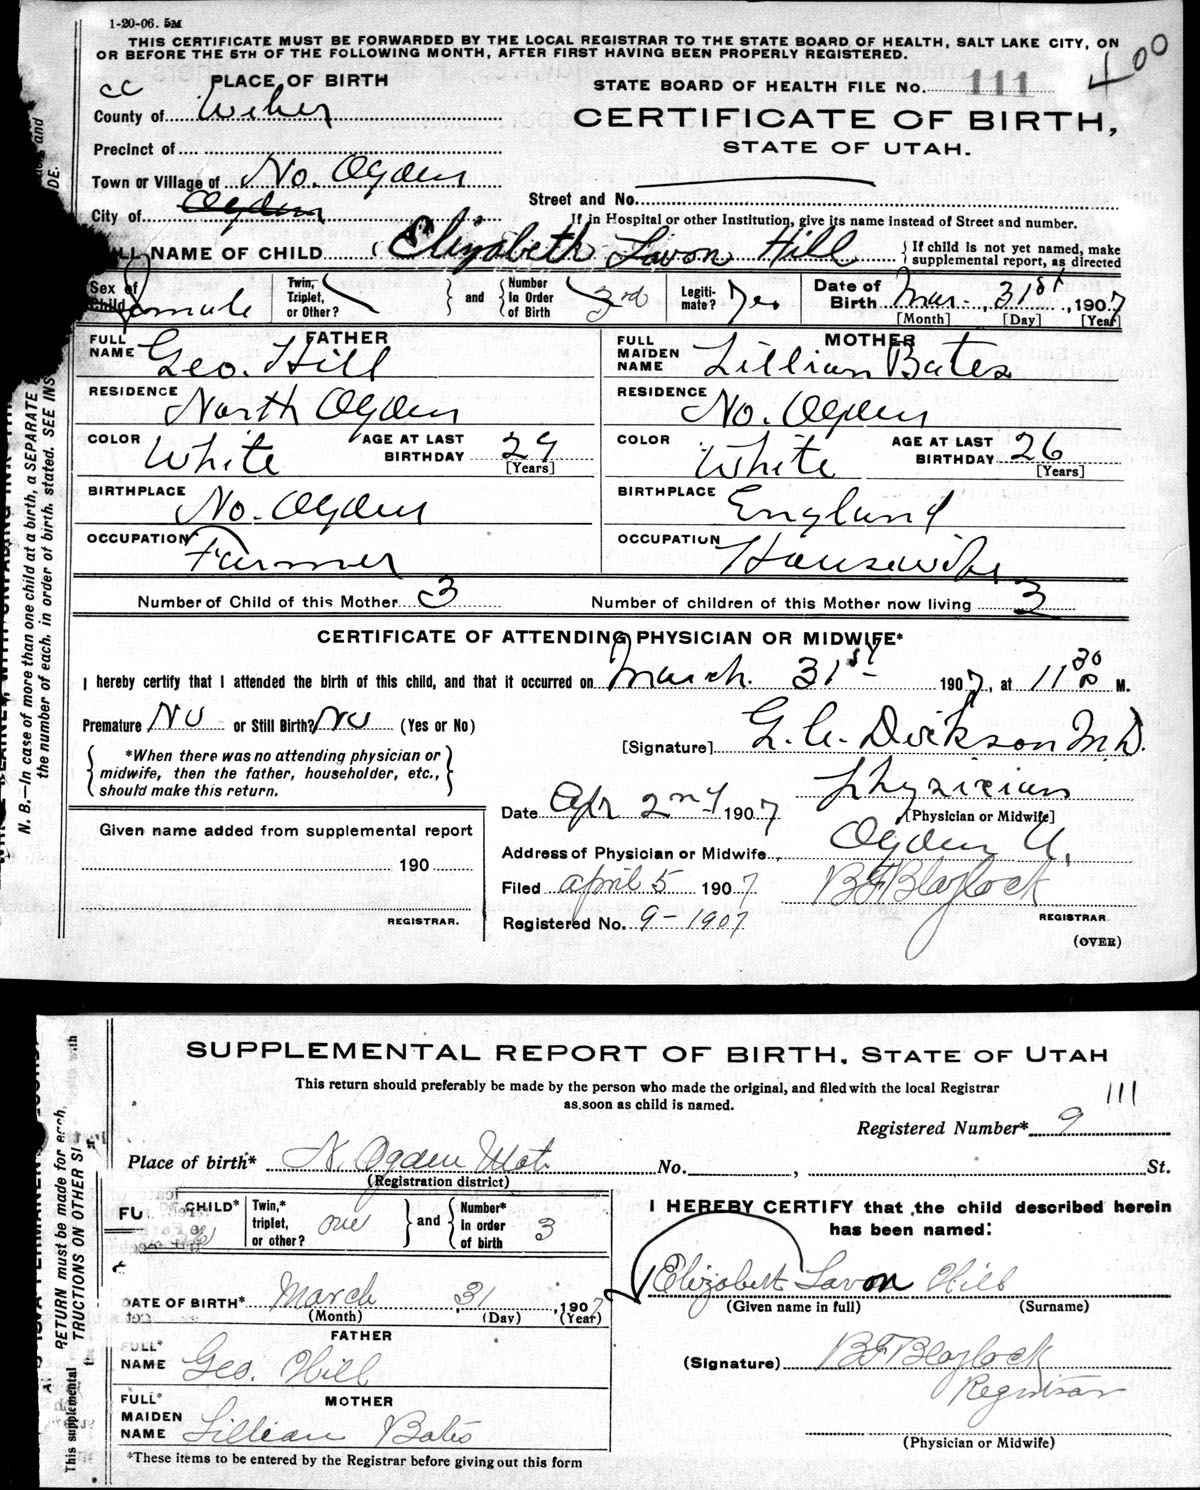 1-20-06. 5M
THIS CERTIFICATE MUST BE FORWARDED BY THE LOCAL REGISTRAR TO THE STATE BOARD OF HEALTH, SALT LAKE CITY, ON
OR BEFORE THE 5TH OF THE FOLLOWING MONTH, AFTER FIRST HAVING BEEN PROPERLY REGISTERED.
cc PLACE OF BIRTH
County of Weber
Precinct of
Town or Village of No. Ogden
City of Ogden
STATE BOARD OF HEALTH FILE No. 111
CERTIFICATE OF BIRTH,
STATE OF UTAH.
Street and No.
If in Hospital or other Institution, give its name instead of Street and number.
NAME OF CHILD Elizabeth Lavon Hill { If child is not yet named, make supplemental report, as directed
Sex of Child Female Twin, Triplet, or Other? and Number In Order of Birth 3rd Legitimate? Yes Date of Birth Mar. 31st, 1907
[Month] [Day] [Year]
FATHER
FULL NAME Geo. Hill
RESIDENCE North Ogden
COLOR White AGE AT LAST BIRTHDAY 29 [Years]
BIRTHPLACE No. Ogden
OCCUPATION Farmer
MOTHER
FULL MAIDEN NAME Lillian Bates
RESIDENCE No. Ogden
COLOR White AGE AT LAST BIRTHDAY 26 [Years]
BIRTHPLACE England
OCCUPATION Housewife
Number of Child of this Mother 3 Number of children of this Mother now living 3
CERTIFICATE OF ATTENDING PHYSICIAN OR MIDWIFE*
I hereby certify that I attended the birth of this child, and that it occurred on March. 31st 1907, at 11 30 P M.
Premature No or Still Birth? No (Yes or No)
*When there was no attending physician or
midwife, then the father, householder, etc.,
should make this return.
[Signature] Dickson M.D.
Physician
[Physician or Midwife]
Date Apr 2nd 1907
Address of Physician or Midwife Ogden U.
Filed April 5 1907 BF Blaylock
REGISTRAR
Registered No. 9-1907
(OVER)
Given name added from supplemental report
190
REGISTRAR.
N. B.—In case of more than one child at a birth, a SEPARATE
the number of each, in order of birth, stated. SEE INS
SUPPLEMENTAL REPORT OF BIRTH, STATE OF UTAH
This return should preferably be made by the person who made the original, and filed with the local Registrar
as soon as child is named.
111
Registered Number* 9
Place of birth* N. Ogden No. , St.
(Registration district)
CHILD* Twin,* triplet, or other? one and Number* In order of birth 3
DATE OF BIRTH* March 31, 1907
(Month) (Day) (Year)
FATHER
FULL* NAME Geo. Hill
MOTHER
FULL* MAIDEN NAME Lillian Bates
*These items to be entered by the Registrar before giving out this form
I HEREBY CERTIFY that the child described herein
has been named:
Elizabeth Lavon Hill
(Given name in full) (Surname)
(Signature) BF Blaylock
Registrar
(Physician or Midwife)
This supplemental
RETURN must be made for each,
TRUCTIONS ON OTHER SI